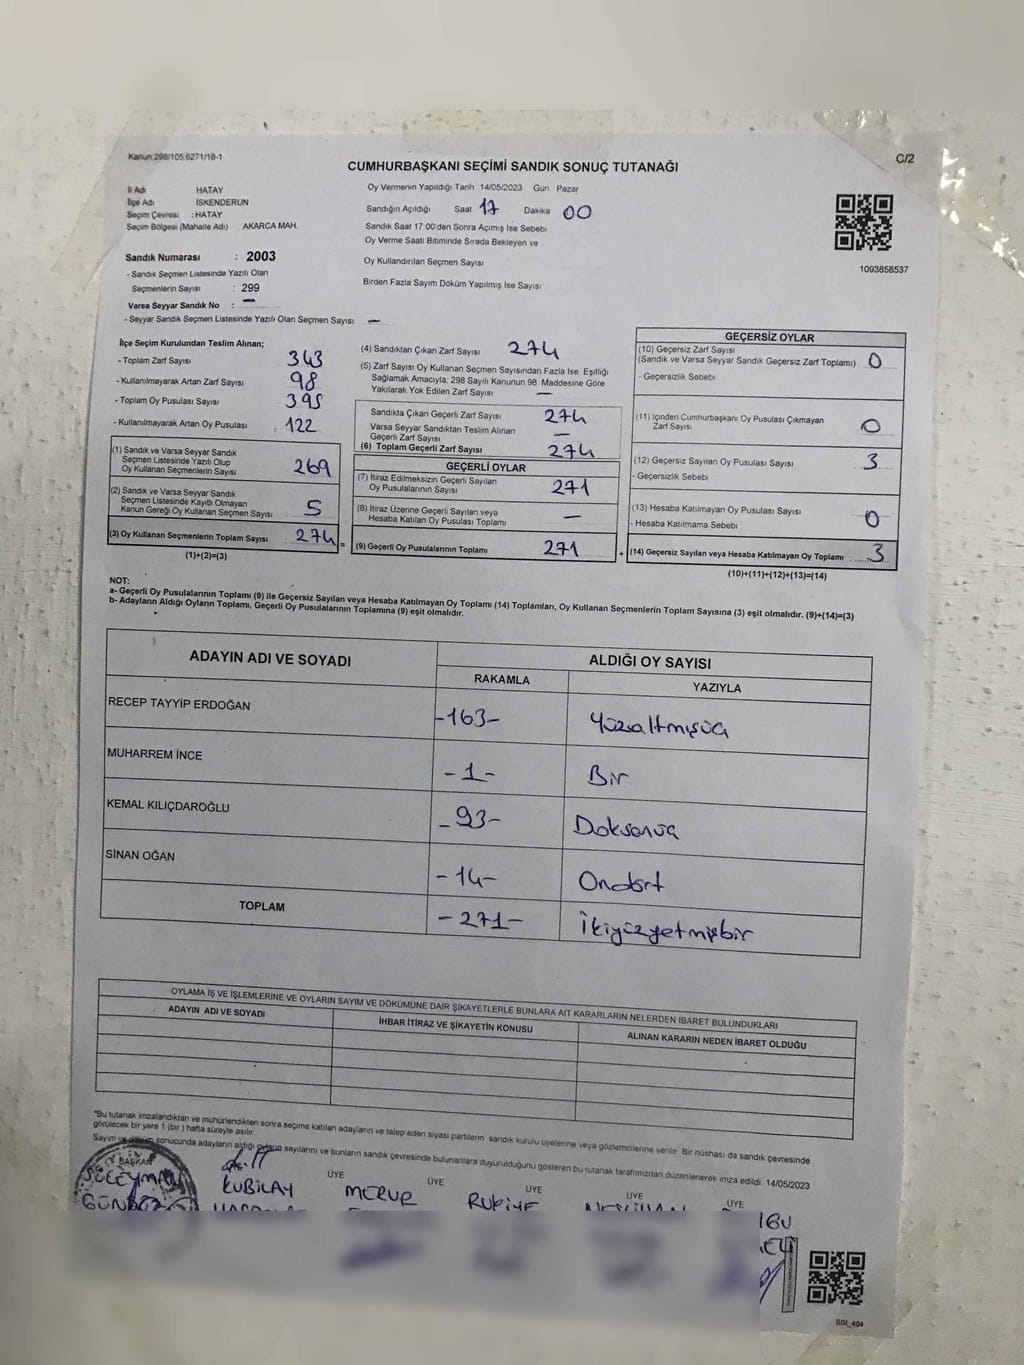 Kanun 298/105.6271/18-1
C/2
CUMHURBAŞKANI SEÇİMİ SANDIK SONUÇ TUTANAĞI
İl Adı HATAY
İlçe Adı İSKENDERUN
Seçim Çevresi : HATAY
Seçim Bölgesi (Mahalle Adı) AKARCA MAH.
Sandık Numarası : 2003
- Sandık Seçmen Listesinde Yazılı Olan
Seçmenlerin Sayısı : 299
Varsa Seyyar Sandık No : –
- Seyyar Sandık Seçmen Listesinde Yazılı Olan Seçmen Sayısı –
Oy Vermenin Yapıldığı Tarih 14/05/2023 Gün Pazar
Sandığın Açıldığı Saat 17 Dakika 00
Sandık Saat 17 00'den Sonra Açımış İse Sebebi
Oy Verme Saati Bitiminde Sırada Bekleyen ve
Oy Kullandırılan Seçmen Sayısı
Birden Fazla Sayım Döküm Yapılmış İse Sayısı
1093858537
İlçe Seçim Kurulundan Teslim Alınan;
- Toplam Zarf Sayısı 343
- Kullanılmayarak Artan Zarf Sayısı 98
- Toplam Oy Pusulası Sayısı 395
- Kullanılmayarak Artan Oy Pusulası 122
(1) Sandık ve Varsa Seyyar Sandık
Seçmen Listesinde Yazılı Olup
Oy Kullanan Seçmenlerin Sayısı 269
(2) Sandık ve Varsa Seyyar Sandık
Seçmen Listesinde Kayıtlı Olmayan
Kanun Gereği Oy Kullanan Seçmen Sayısı 5
(3) Oy Kullanan Seçmenlerin Toplam Sayısı 274 =
(1)+(2)=(3)
(4) Sandıktan Çıkan Zarf Sayısı 274
(5) Zarf Sayısı Oy Kullanan Seçmen Sayısından Fazla İse Eşitliği
Sağlamak Amacıyla, 298 Sayılı Kanunun 98. Maddesine Göre
Yakılarak Yok Edilen Zarf Sayısı –
Sandıkta Çıkan Geçerli Zarf Sayısı 274
Varsa Seyyar Sandıktan Teslim Alınan
Geçerli Zarf Sayısı –
(6) Toplam Geçerli Zarf Sayısı 274
GEÇERLİ OYLAR
(7) İtiraz Edilmeksizin Geçerli Sayılan
Oy Pusulalarının Sayısı 271
(8) İtiraz Üzerine Geçerli Sayılan veya
Hesaba Katılan Oy Pusulası Toplamı –
(9) Geçerli Oy Pusulalarının Toplamı 271 +
GEÇERSİZ OYLAR
(10) Geçersiz Zarf Sayısı
(Sandık ve Varsa Seyyar Sandık Geçersiz Zarf Toplamı) 0
- Geçersizlik Sebebi
(11) İçinden Cumhurbaşkanı Oy Pusulası Çıkmayan
Zarf Sayısı 0
(12) Geçersiz Sayılan Oy Pusulası Sayısı 3
- Geçersizlik Sebebi
(13) Hesaba Katılmayan Oy Pusulası Sayısı 0
- Hesaba Katılmama Sebebi
(14) Geçersiz Sayılan veya Hesaba Katılmayan Oy Toplamı 3
(10)+(11)+(12)+(13)=(14)
NOT:
a- Geçerli Oy Pusulalarının Toplamı (9) ile Geçersiz Sayılan veya Hesaba Katılmayan Oy Toplamı (14) Toplamları, Oy Kullanan Seçmenlerin Toplam Sayısına (3) eşit olmalıdır. (9)+(14)=(3)
b- Adayların Aldığı Oyların Toplamı, Geçerli Oy Pusulalarının Toplamına (9) eşit olmalıdır.
ADAYIN ADI VE SOYADI ALDIĞI OY SAYISI
RAKAMLA YAZIYLA
RECEP TAYYİP ERDOĞAN -163- Yüzaltmışüç
MUHARREM İNCE -1- Bir
KEMAL KILIÇDAROĞLU -93- Doksanüç
SİNAN OĞAN -14- Ondört
TOPLAM -271- İkiyüzyetmişbir
OYLAMA İŞ VE İŞLEMLERİNE VE OYLARIN SAYIM VE DÖKÜMÜNE DAİR ŞİKAYETLERLE BUNLARA AİT KARARLARIN NELERDEN İBARET BULUNDUKLARI
ADAYIN ADI VE SOYADI İHBAR İTİRAZ VE ŞİKAYETİN KONUSU ALINAN KARARIN NEDEN İBARET OLDUĞU
*Bu tutanak imzalandıktan ve mühürlendikten sonra seçime katılan adayların ve talep eden siyasi partilerin sandık kurulu üyelerine veya gözlemcilerine verilir Bir nüshası da sandık çevresinde
görülecek bir yere 1 (bir ) hafta süreyle asılır.
Sayım ve döküm sonucunda adayların aldığı oyların sayılarını ve bunların sandık çevresinde bulunanlara duyurulduğunu gösteren bu tutanak tarafımızdan düzenlenerek imza edildi. 14/05/2023
BAŞKAN ÜYE ÜYE ÜYE ÜYE ÜYE
SÜLEYMAN KUBİLAY MERUR RUKİYE